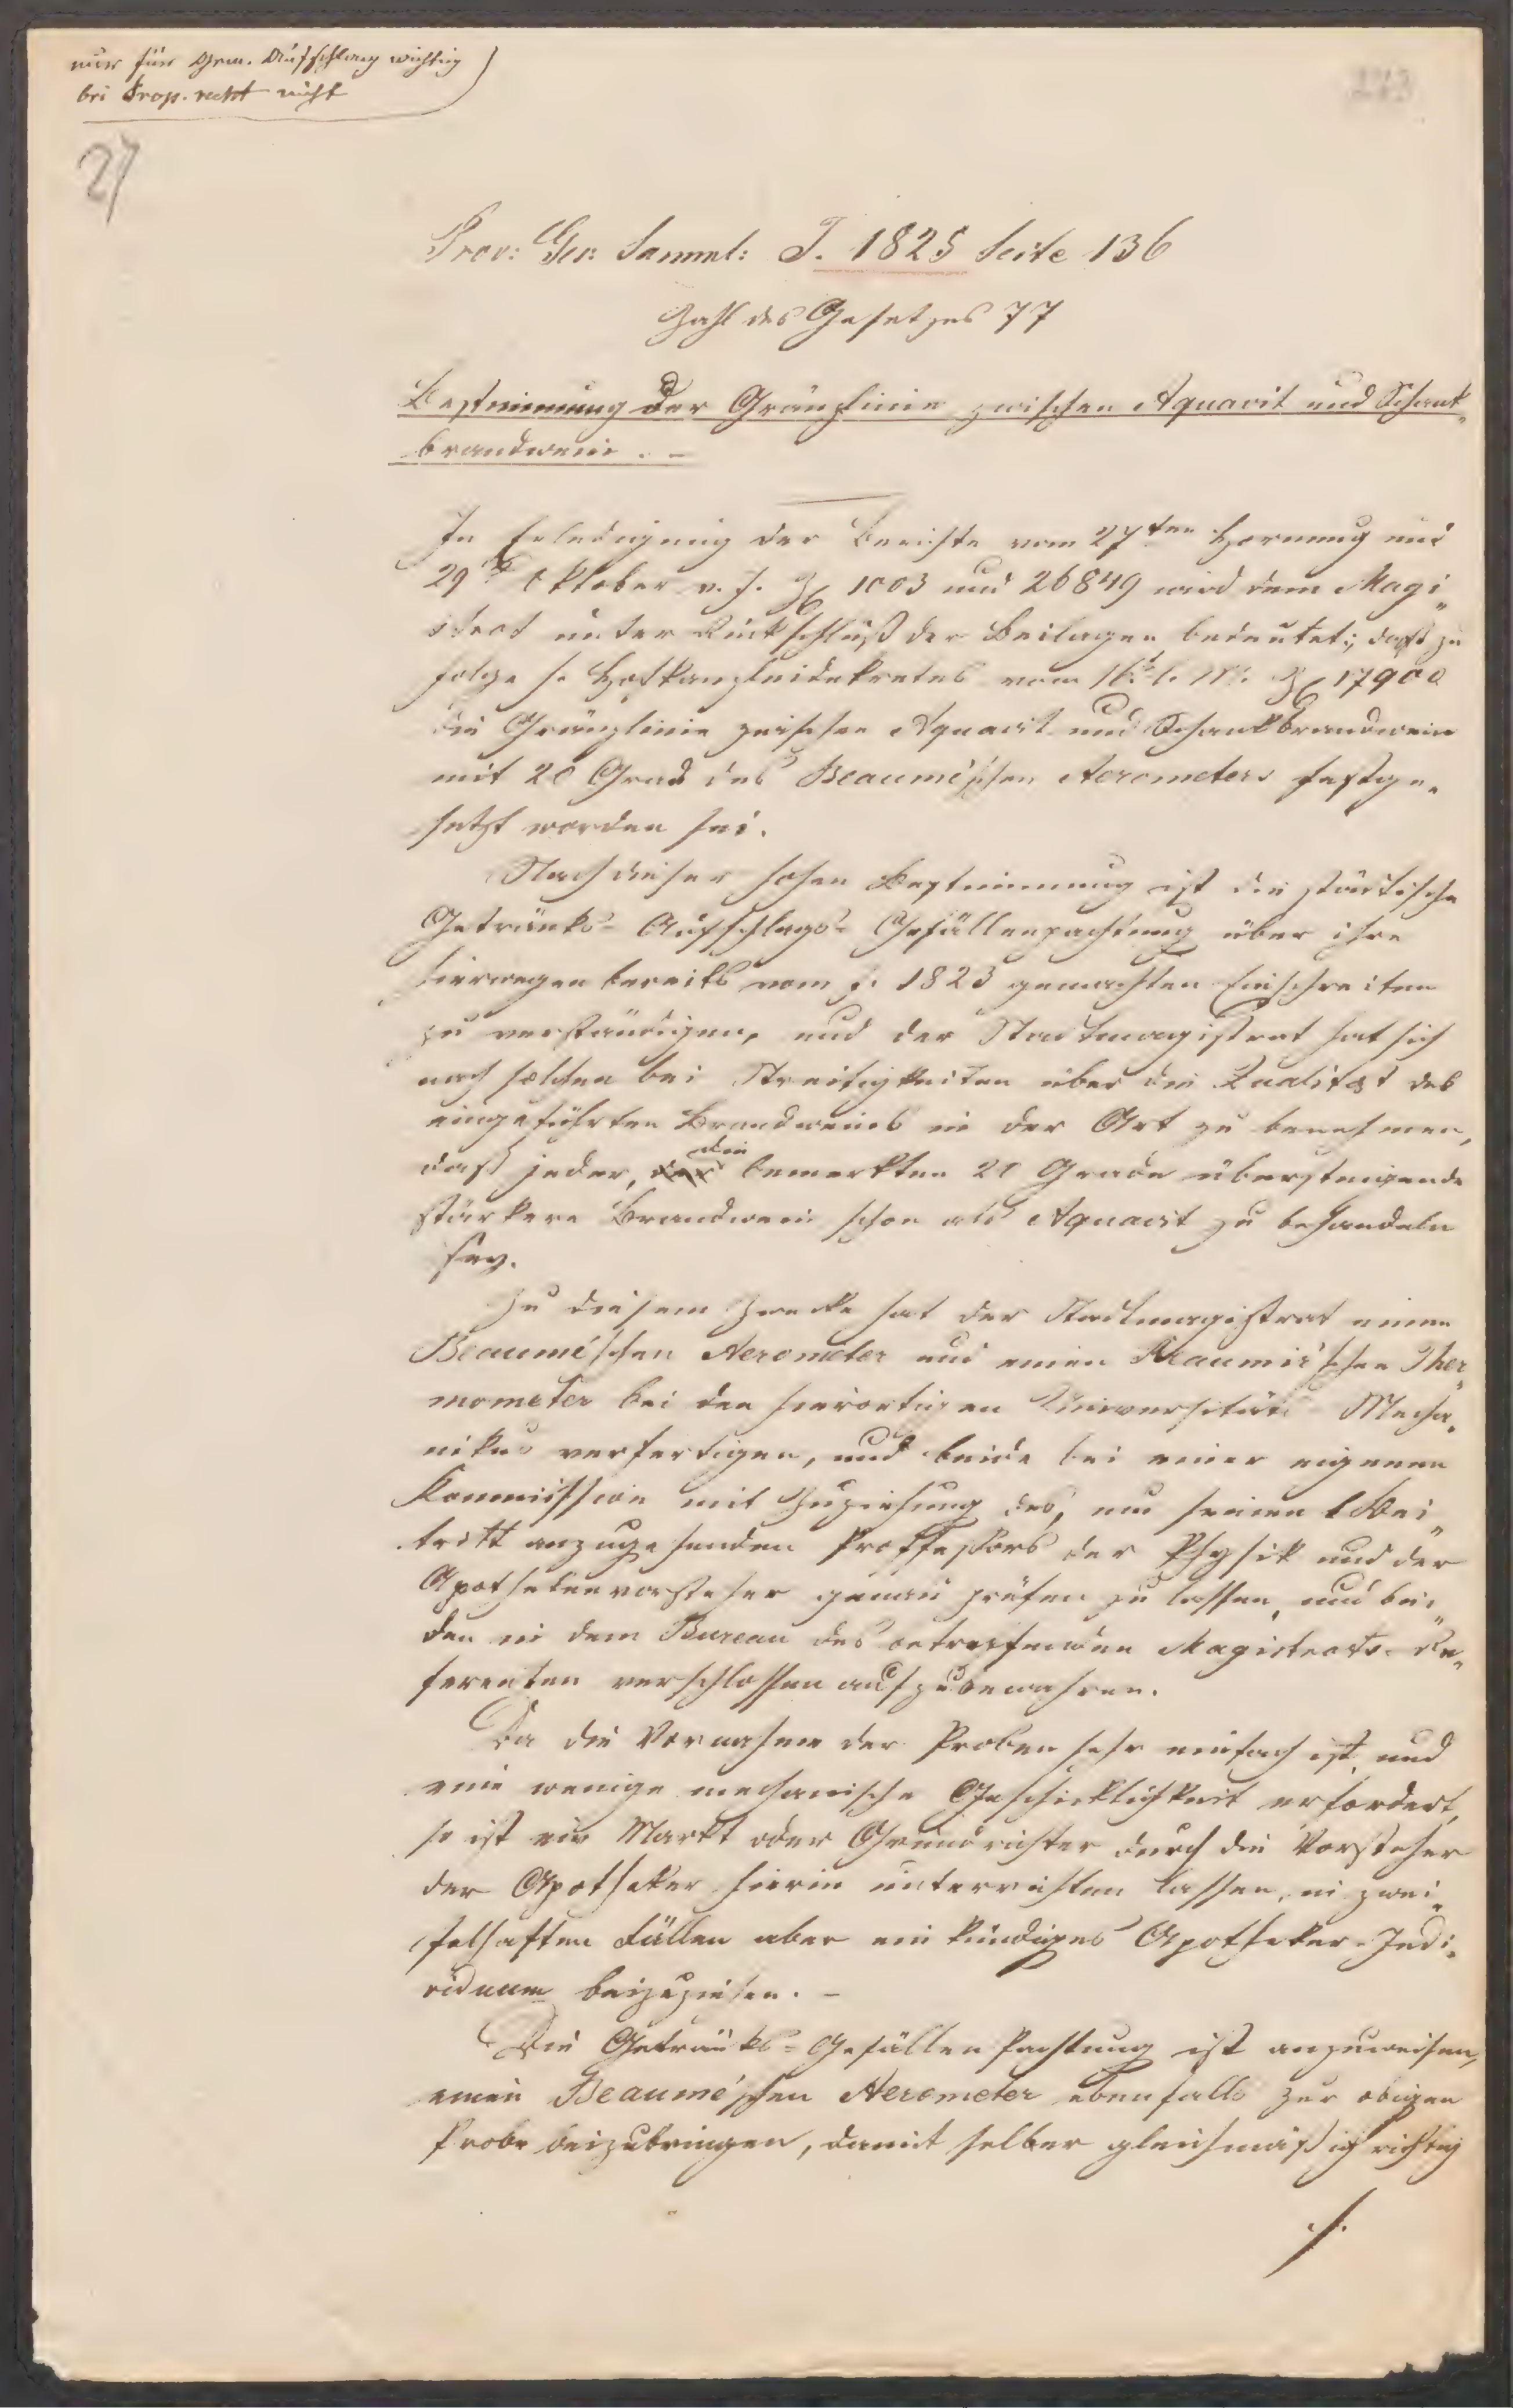 nur für Gem. Aufschlag wichtig
bei Prop. recht nicht
273
27
Prov: Ges: Samml: J. 1825 Seite 136
Zahl des Gesetzes 77
Bestimmung der Gränzlinie zwischen Aquavit und Schank„
brandwein. –
In Erledigung der Berichte vom 27ten Hornung und
29t Oktober v. J. Z 1003 und 26849 wird dem Magi„
strat unter Rückschluß der Beilagen bedeutet; daß zu
folge h. Hofkanzleidekretes vom 16t l. M. Z 17900
die Gränzlinie zwischen Aquavit und Schankbrandwein
mit 20 Grad des Beaumé'schen Aerometers festge„
setzt worden sei.
Nach dieser hohen Bestimmung ist die städtische
Getränks- Aufschlags- Gefällenpachtung über ihre
hierwegen bereits vom J. 1823 gemachten Einschreiten
zu verständigen, und der Stadtmagistrat hat sich
nach solchen bei Streitigkeiten über die Qualität des
eingeführten Brandweins in der Art zu benehmen,
daß jeder, die bemerkten 20 Grade übersteigende
stärkere Brandwein schon als Aquavit zu behandeln
sey.
Zu diesem Zwecke hat der Stadtmagistrat einen
Beaumé'schen Aerometer und einen Reaumir'schen Ther„
mometer bei den hierortigen Universitäts Mecha„
nikus verfertigen, und beide bei einer eigenen
Kommission mit Zuziehung des, um seinen Bei„
tritt anzugehenden Proffessors der Physik und der
Apothekenvorsteher genau prüfen zu lassen, und bei„
den in dem Bureau des betreffenden Magistrats- Re„
ferenten verschlossen aufzubewahren.
Da die Vornahme der Proben sehr einfach ist, und
eine wenige mechanische Geschicklichkeit erfordert,
so ist ein Markt oder Grundrichter durch die Vorsteher
der Apotheker hierin unterrichten lassen, in zwei„
felhaften Fällen aber ein kundiges Apotheker-Indi„
viduum beizuziehen. –
Die Getränks-Gefällen Pachtung ist anzuweisen,
einen Beaumé'schen Aerometer ebenfalls zur obigen
Probe beizubringen, damit selber gleichmäßig richtig
./.